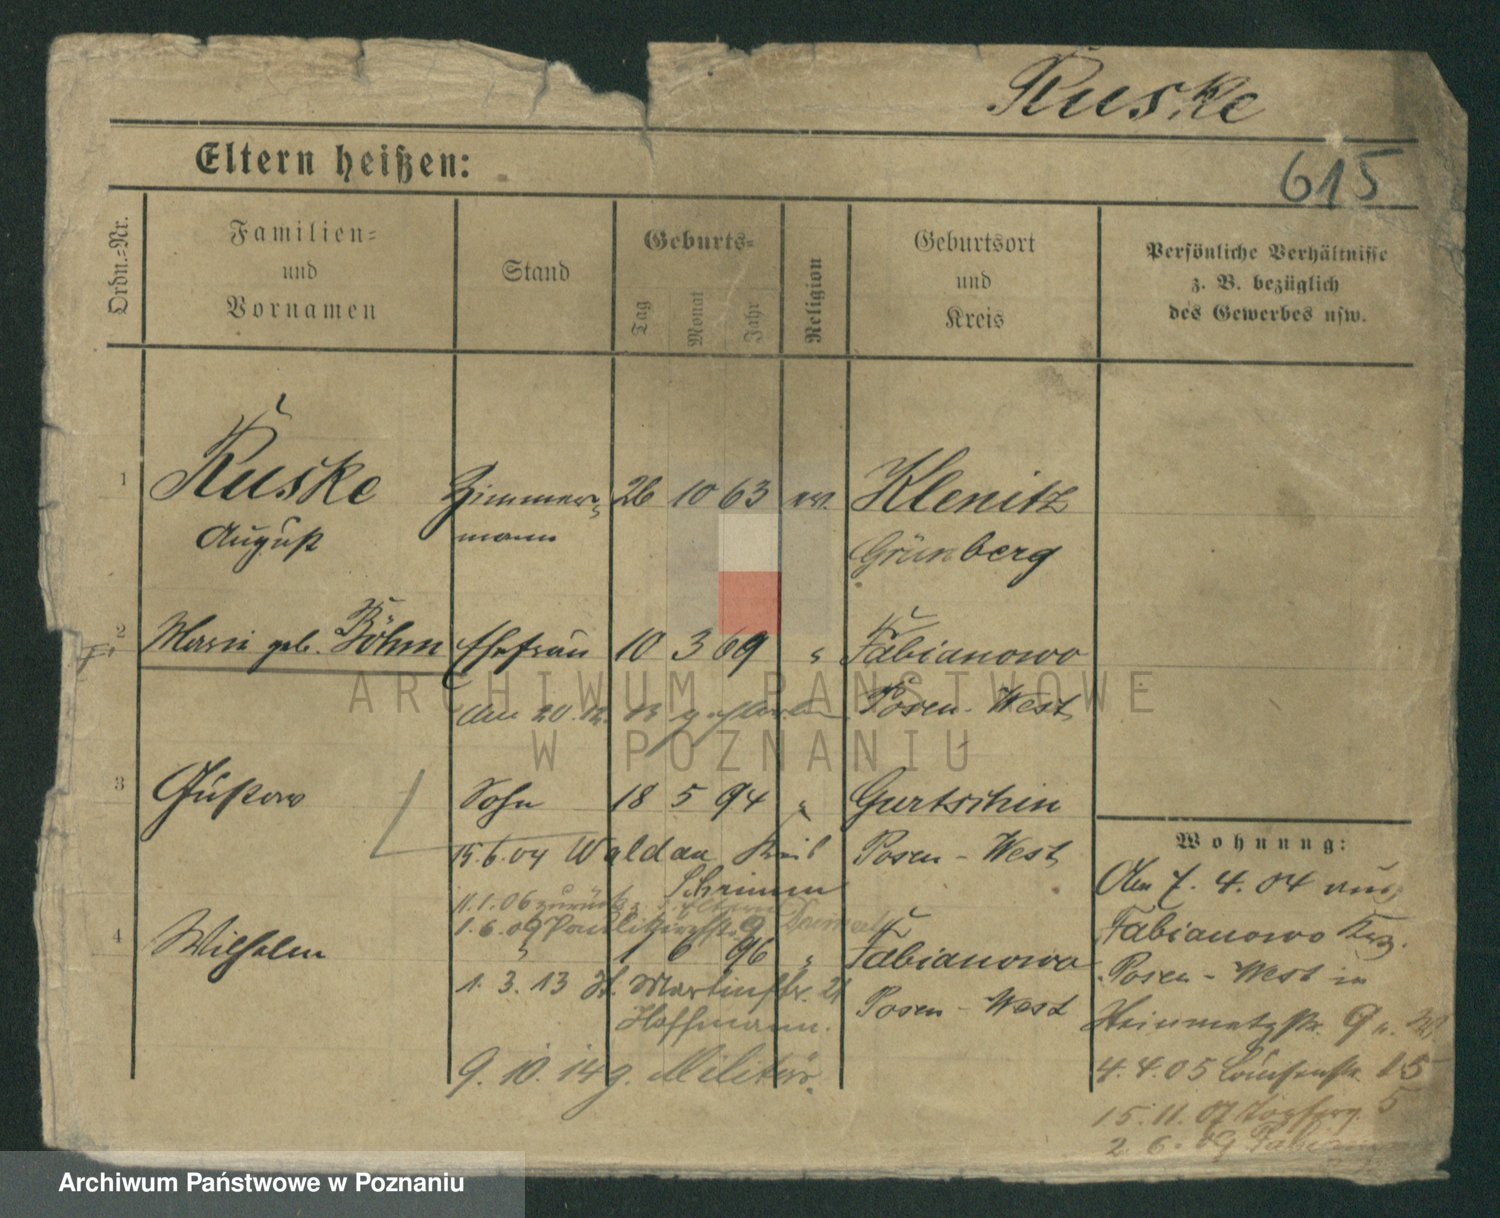 Ruske
615
Eltern heißen:
Ordn.-Nr.
Familien-
und
Vornamen
Stand
Geburts-
Tag
Monat
Jahr
Religion
Geburtsort
und
Kreis
Persönliche Verhältnisse
z. B. bezüglich
des Gewerbes usw.
1 Ruske Zimmer- 26 10 63 ev. Klenitz
August mann Grünberg
2 Marie geb. Böhm Ehefrau 10 3 69 " Fabianowo
am 20.12. 13 gestorben Posen-West
3 Gustav Sohn 18 5 94 " Gurtschin
15.6.04 Waldau Posen-West
Schrimm
11.1.06 zurück
1.6.09
4 Wilhelm " 1 6 96 " Fabianowo
1. 3. 13 St. Martinstr. 21 Posen-West
Hoffmann.
9. 10. 14 g. Militär.
Wohnung:
Am 7. 4. 04 aus
Fabianowo Krs.
Posen-West in
9
4. 4. 05 15
15. 11. 07 5
2. 6. 09
ARCHIWUM PAŃSTWOWE
W POZNANIU
Archiwum Państwowe w Poznaniu